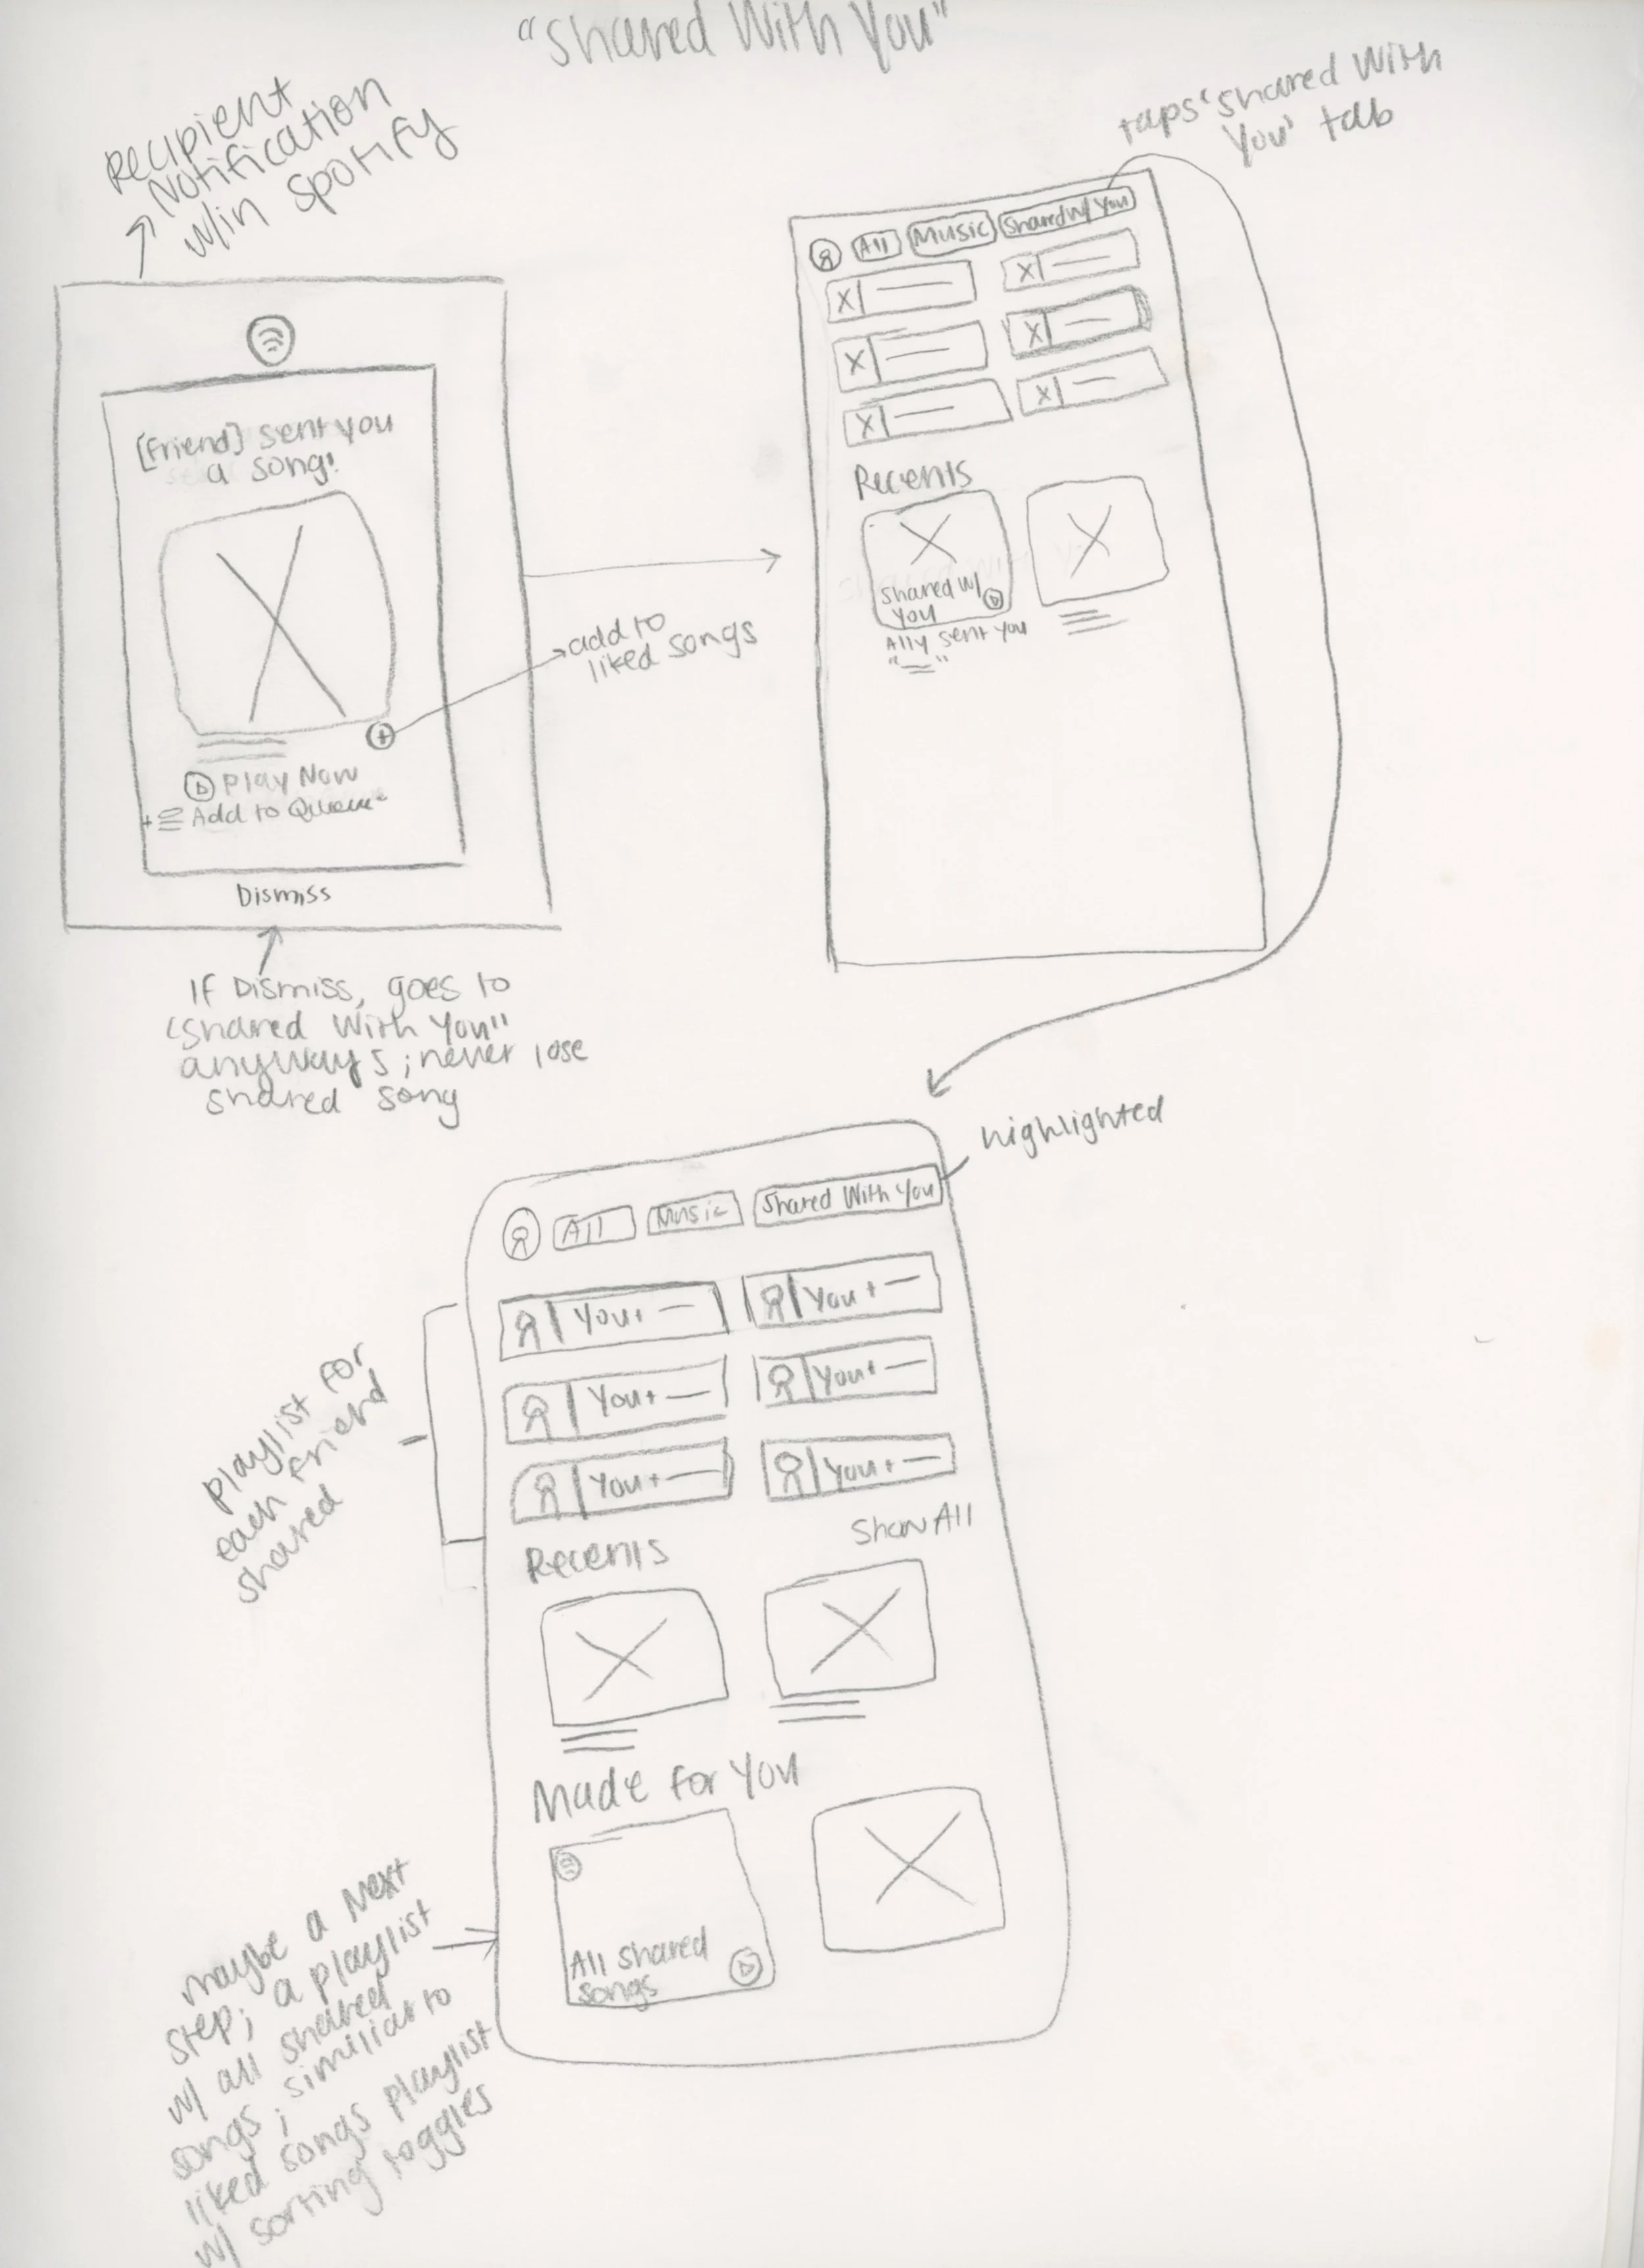 "Shared With You"
Recipient
Notification
w/in Spotify
[Friend] sent you
a song!
Play Now
+ Add to Queue
Dismiss
add to
liked songs
If Dismiss, goes to
"Shared With You"
anyways; never lose
shared song
taps 'Shared With
You' tab
All Music Shared w/ You
Recents
Shared w/
You
Ally sent you
highlighted
All Music Shared With You
You + You +
You + You +
You + You +
playlist for
each friend
shared
Recents Show All
Made for You
All shared
songs
maybe a Next
step; a playlist
w/ all shared
songs; similiar to
liked songs playlist
w/ sorting toggles